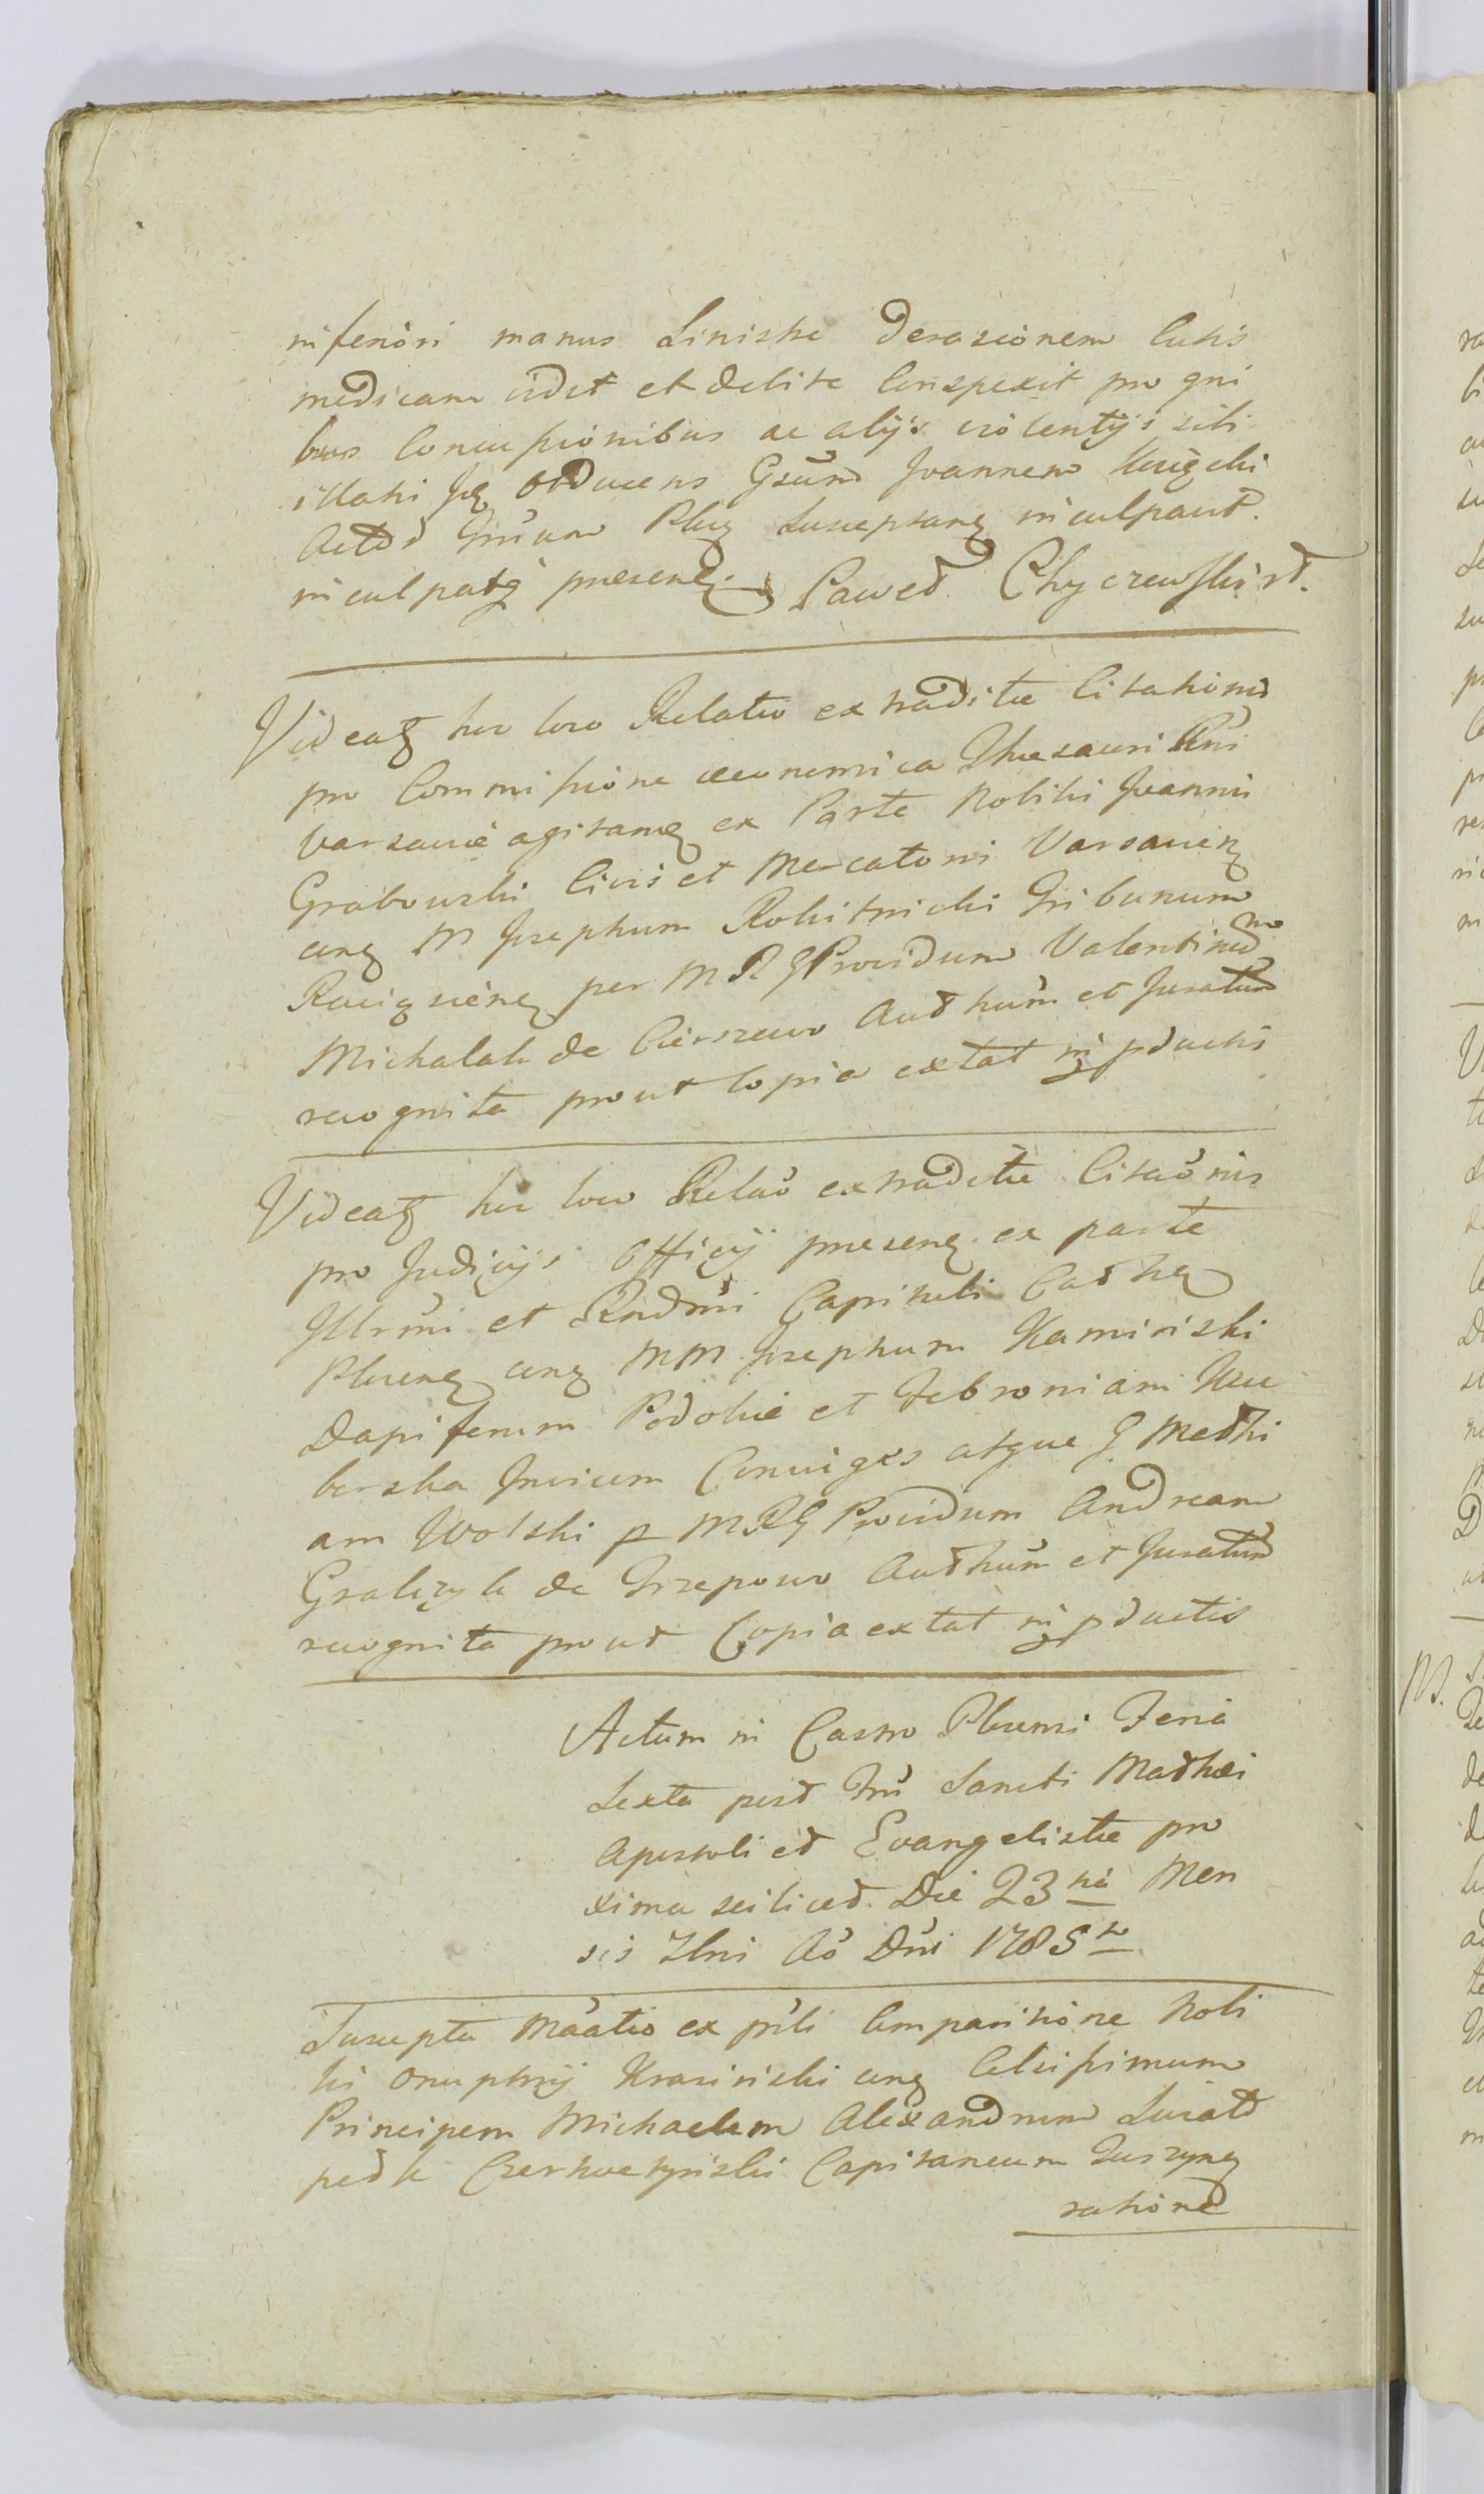 inferiori manus Sinistre Derasionem Cutis
medicam vidit et debite Conspexit pro qui
bus Concussionibus ac alijs violentijs sibi
illatis Jq obducens Gsūm Joannem
Actor Plug Susceptanq inculpavit.
inculpatq presenq. Paweł Chyczewski rđ.
Videatq hic loco Relatio extraditæ Citationis
pro Commissione œconomica Thesauri Rni
Varsaviè agitanq ex Parte Nobilis Joannis
Grabowski Civis et Mercatoris Varsavienq
conq M Josephum Rokitnicki Tribunum
Raciqzienq per M R G Providum Valentinum
Michalak de Cierszewo Authūm et Juratum
recognita prout Copia extat inpductis
Videatq hic loco Relaō extraditæ Citaōnis
pro Judicijs Officij presenq ex parte
Jllrmi et Rndmi Capituli Cathq
Plocenq conq MM Josephum Kaminski
Dapiferum Podoliæ et Febroniam Kuc
borska Invicem Conviges atque G Mathi
am Wolski p MRG Providum Andream
Gralczyk de Trzepowo Authūm et Juratum
recognita prout Copia extat inpductis
Actum in Castro Plocensi Feria
Sexta post Frū Sancti Mathæi
Apostoli et Evangelistæ pro
xima scilicet Die 23tia Men
sis 7bris Aō Dni 1785to
Suscepta Māatio ex prīli Comparitione Nobi
lis Onuphrij Krasinski conq Celsissimum
Principem Michaelem Alexandrum Swiato
pełk Czetwertynski Capitaneum Juszynq
ratione